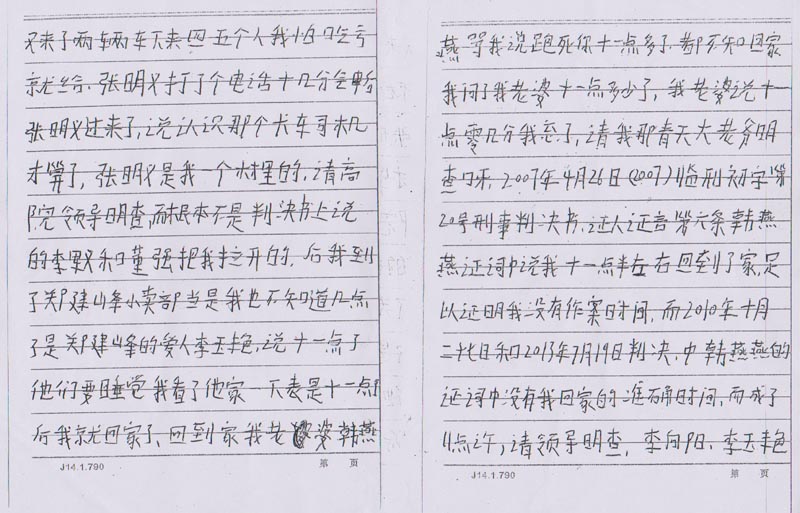 又来了两车辆车下来四五个人我怕吃亏
就给张明义打了个电话十几分会
张明义过来了,说认识那个卡车司机
才算了,张明义是我一个村里的,请高
院领导明查,而根本不是判决书上说
的李默和董强把我拉开的,后我到
了郑建峰小卖部当是我也不知道几点
了是郑建峰的爱人李玉艳,说十一点了
他们要睡觉我看了他家一下表是十一点
后我就回家了,回到家我老婆韩燕
J14.1.790 第 页
燕骂我说跑死你十一点多了都不知回家
我问了我老婆十一点多少了,我老婆说十一
点零几分我忘了,请我那青天大老爷明
查呀,2007年4月26日(2007)临刑初字第
20号刑事判决书,证人证言第六条韩燕
燕证词中说我十一点半左右回到了家,足
以证明我没有作案时间,而2010年十月
二十七日和2013年7月19日判决,中韩燕燕的
证词中没有我回家的准确时间,而成了
11点过午,请领导明查,李向阳、李玉艳
J14.1.790 第 页